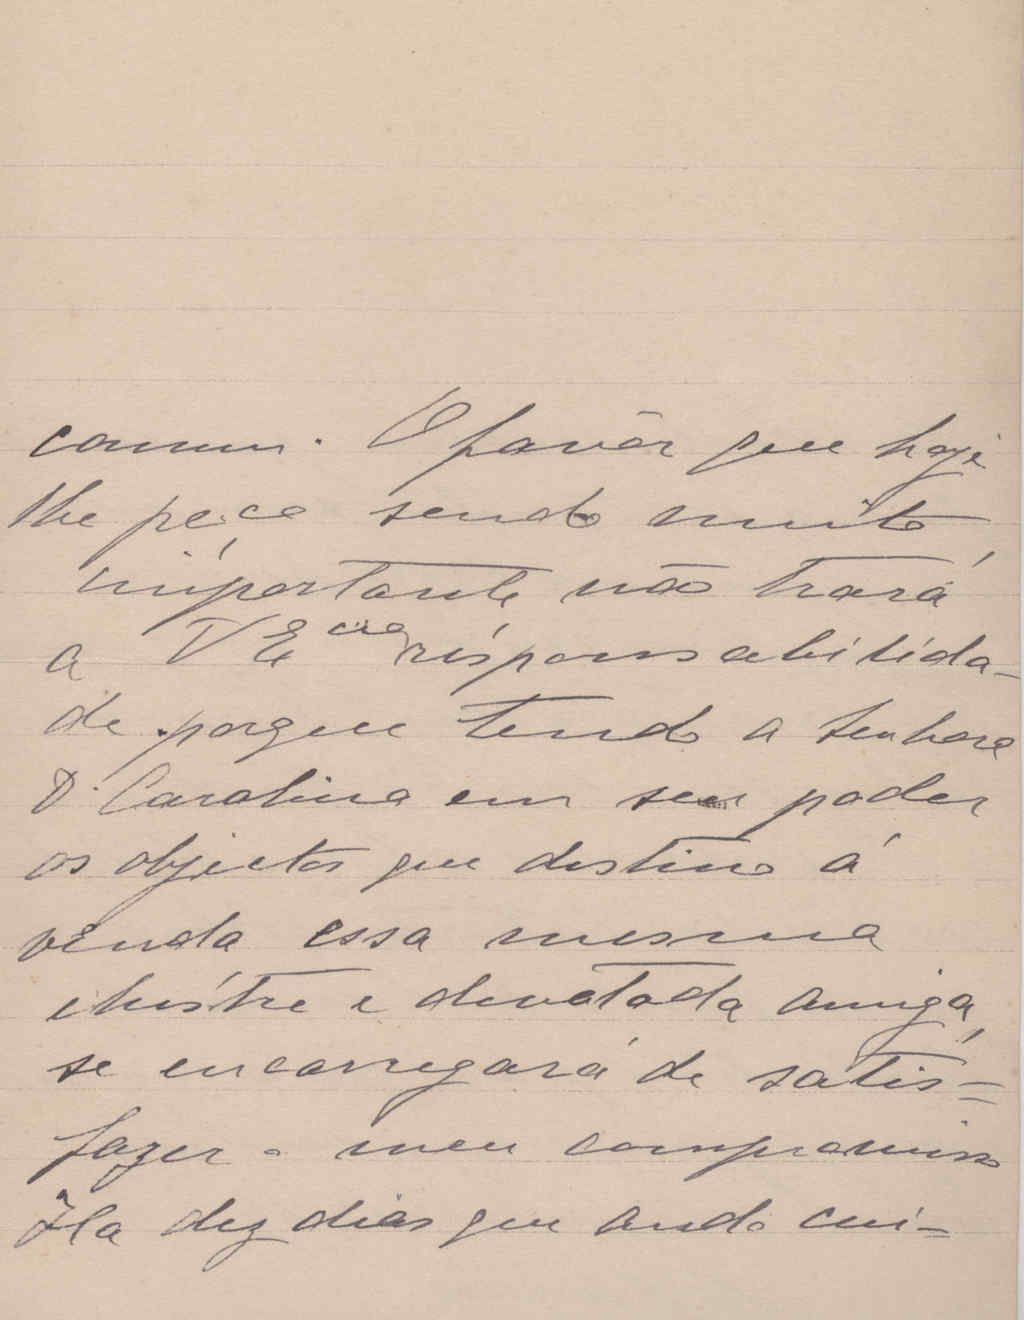 commum. O favôr que hoje
lhe peço sendo muito
importante não trará
a V Ecia responsabilida-
de porque tendo a Senhora
D. Carolina em seu poder
os objectos que destino á
venda essa mesma
illustre e devotada amiga,
se encarregará de satis=
fazer o meu compromisso
Ha dez dias que ando cui=